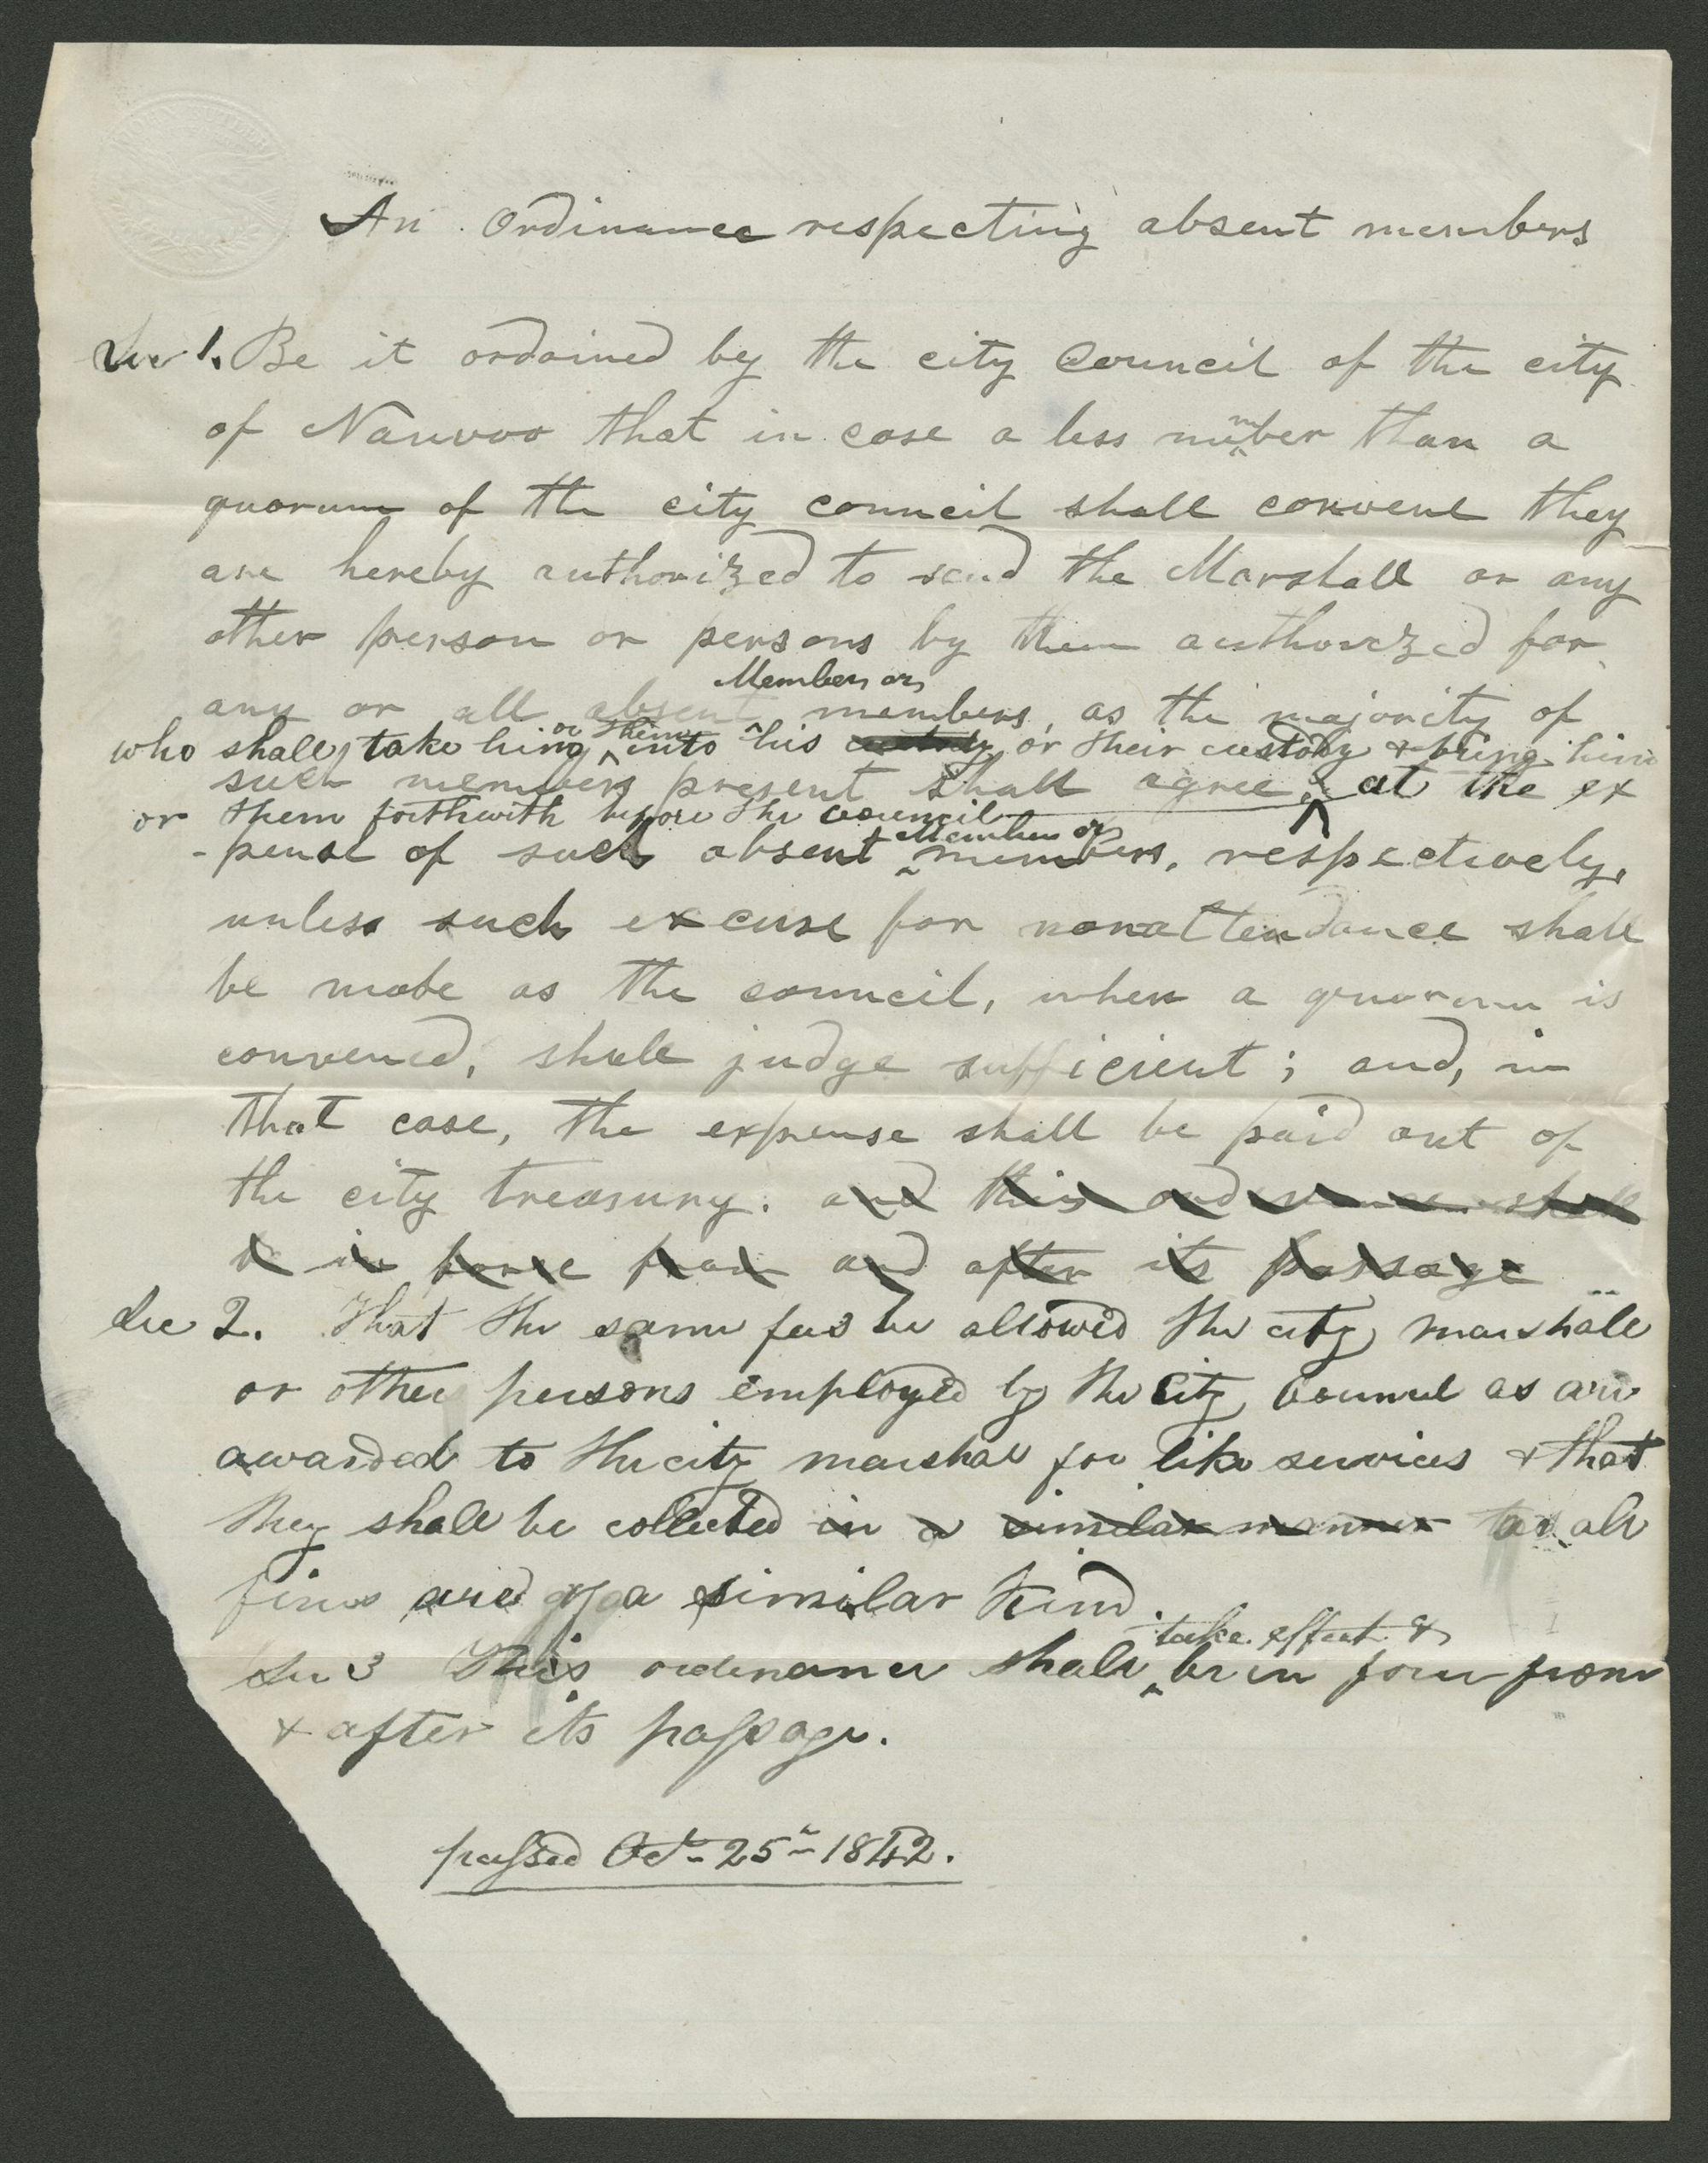 An Ordinance respecting absent members
Sec 1. Be it ordained by the city Council of the city
of Nauvoo that in case a less number than a
quorum of the city council shall convene they
are hereby authorized to send the Marshall or any
other person or persons by them authorized for
Member or
any or all absent members, as the majority of
or them
who shall take him into his custody or their custody & bring him
such members present shall agree, at the ex
or them forthwith before the council
Member or
-pense of such absent members, respectively,
unless such excuse for nonattendance shall
be made as the council, when a quorum is
convened, shall judge sufficient; and, in
that case, the expense shall be paid out of
the city treasury. and this ordinance shall
be in force from and after its passage
Sec 2. That the same fees be allowed the city marshall
or other persons employed by the City Council as are
awarded to the city marshal for like services & that
they shall be collected in a similar manner as all
fines are of a similar kind.
take effect &
Sec 3 This ordinance shall be in force from
& after its passage.
passed Oct. 25th 1842.